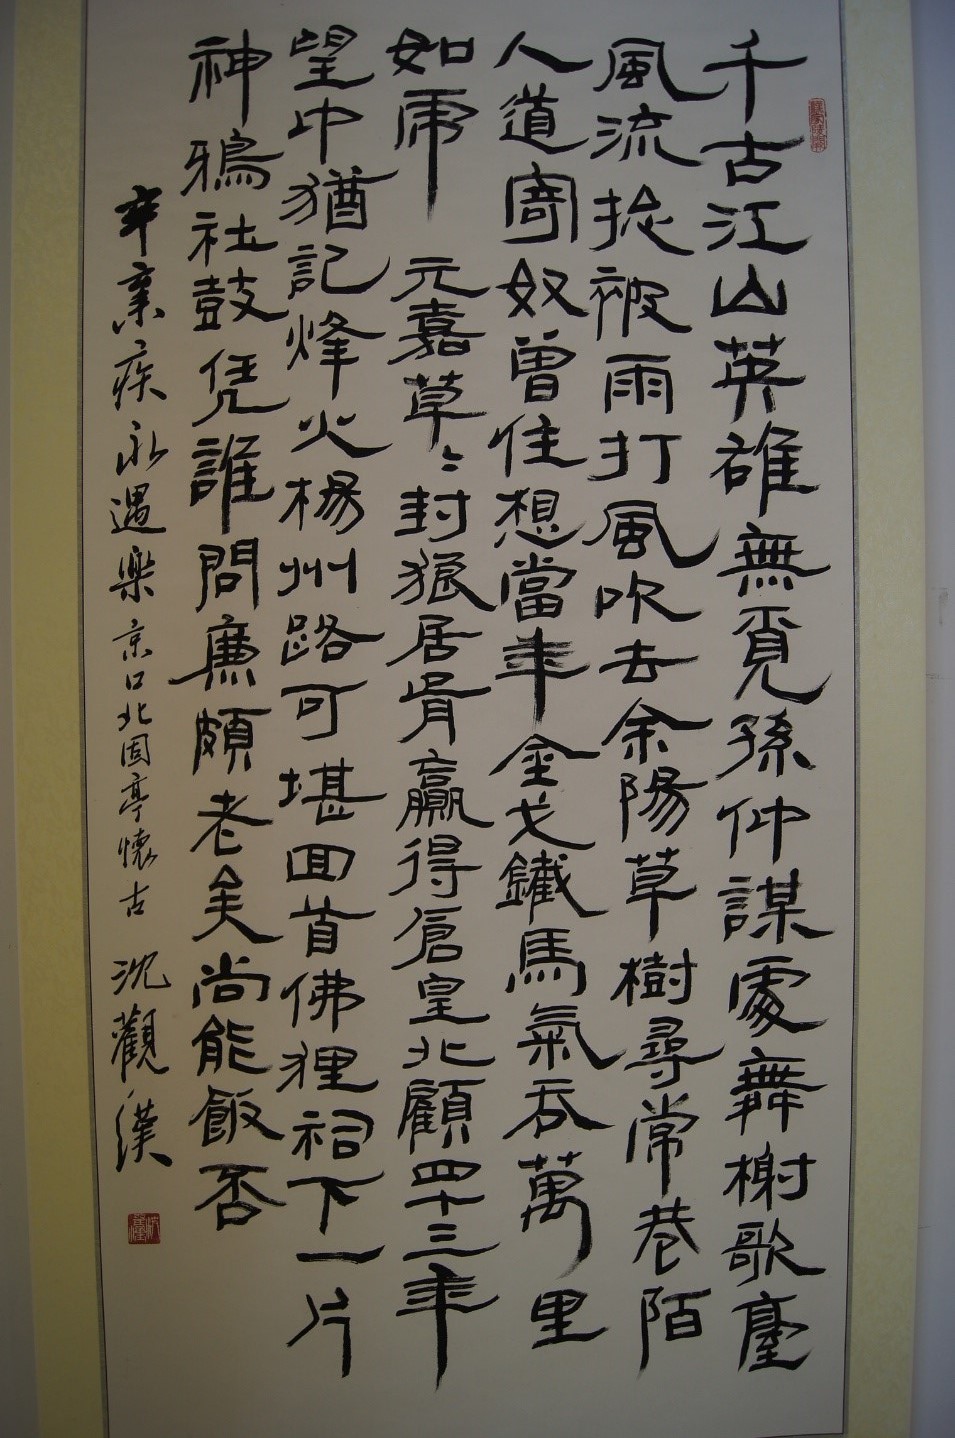 千古江山英雄無覓孫仲謀處舞榭歌臺
風流捴被雨打風吹去余陽草樹尋常巷陌
人道寄奴曾住想當年金戈鐵馬氣吞萬里
如虎 元嘉草〻封狼居胥贏得倉皇北顧四十三年
望中猶記烽火楊州路可堪回首佛狸祠下一片
神鴉社鼓凭誰問廉頗老矣尚能飯否
辛棄疾永遇樂京口北固亭懷古 沈觀漢